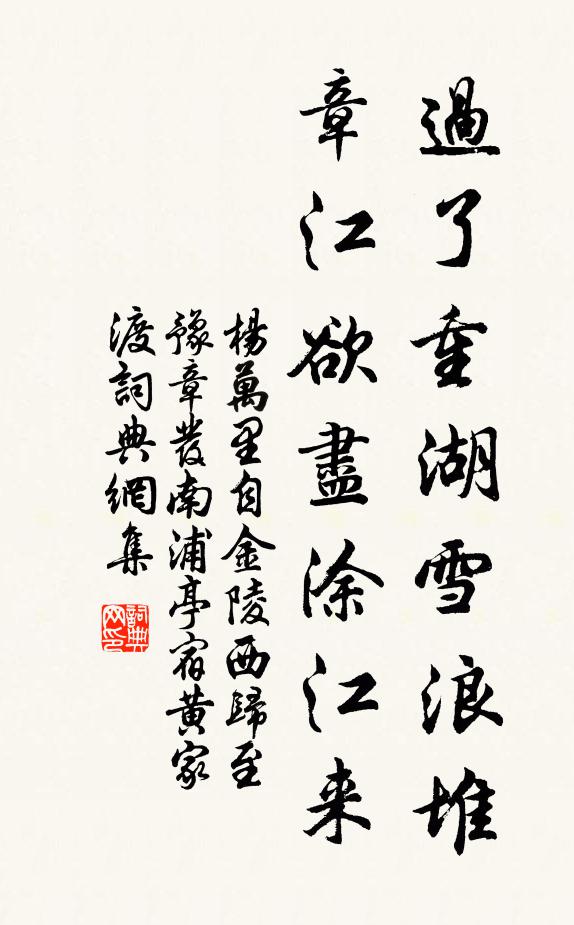 過了重湖雪浪堆
章江欲盡涂江来
楊萬里自金陵西歸至
豫章發南浦亭宿黄家
渡詞典網集
詞典网印